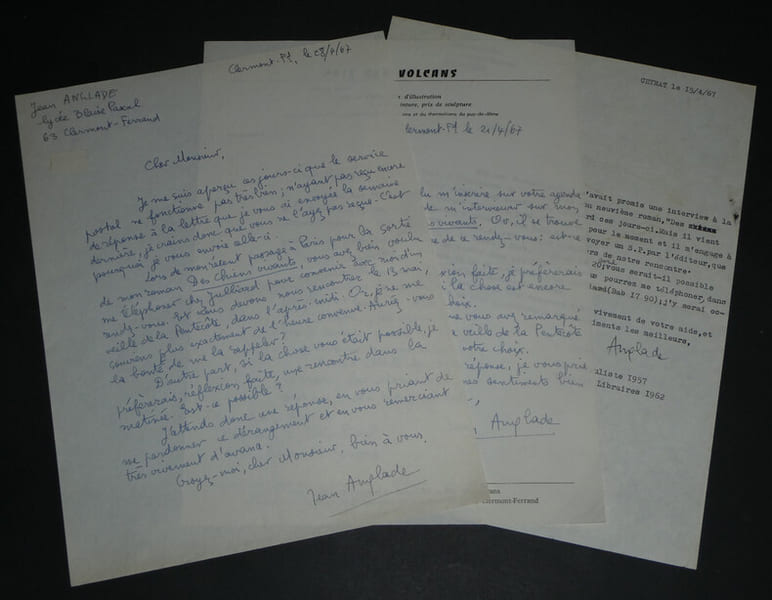 Jean ANGLADE
lycée Blaise Pascal
63 Clermont-Ferrand
Clermont-Fd, le 28/4/67
Cher Monsieur,
Je me suis aperçu ces jours-ci que le service
postal ne fonctionne pas très bien ; n'ayant pas reçu encore
de réponse à la lettre que je vous ai envoyée la semaine
dernière, je crains donc que vous ne l'ayez pas reçue. C'est
pourquoi je vous envoie celle-ci.
Lors de mon récent passage à Paris pour la sortie
de mon roman Des chiens vivants, vous avez bien voulu
me téléphoner chez Julliard pour convenir avec moi d'un
rendez-vous. Est nous devons nous rencontrer le 13 mai,
veille de la Pentecôte, dans l'après-midi. Or, je ne me
souviens plus exactement de l'heure convenue. Auriez-vous
la bonté de me la rappeler ?
D'autre part, si la chose vous était possible, je
préférerais, réflexion faite, une rencontre dans la
matinée. Est-ce possible ?
J'attends donc une réponse, en vous priant de
me pardonner ce dérangement et en vous remerciant
très vivement d'avance.
Croyez-moi, cher Monsieur, bien à vous.
Jean Anglade
VOLCANS
d'illustration
inture, prix de sculpture
et du thermalisme du puy-de-dôme
Clermont-Fd le 21/4/67
m'inscrire sur votre agenda
de m'interviewer sur mon
vivants. Or, il se trouve
de ce rendez-vous : est-ce
xion faite, je préférerais
la chose est encore
choix.
vous avez remarqué
veille de la Pentecôte
votre choix.
réponse, je vous prie
mes sentiments bien
Anglade
cans
Clermont-Ferrand
CEYRAT le 15/4/67
'avait promis une interview à la
n neuvième roman,"Des
rd ces jours-ci.Mais il vient
pour le moment et il m'engage à
voyer un S.P.par l'éditeur,que
rs de notre rencontre.
20,vous serait-il possible
us pourrez me téléphoner,dans
iard(Dab 17.90);j'y serai oc-
vivement de votre aide,et
iments les meilleurs,
Anglade
uliste 1957
Libraires 1962